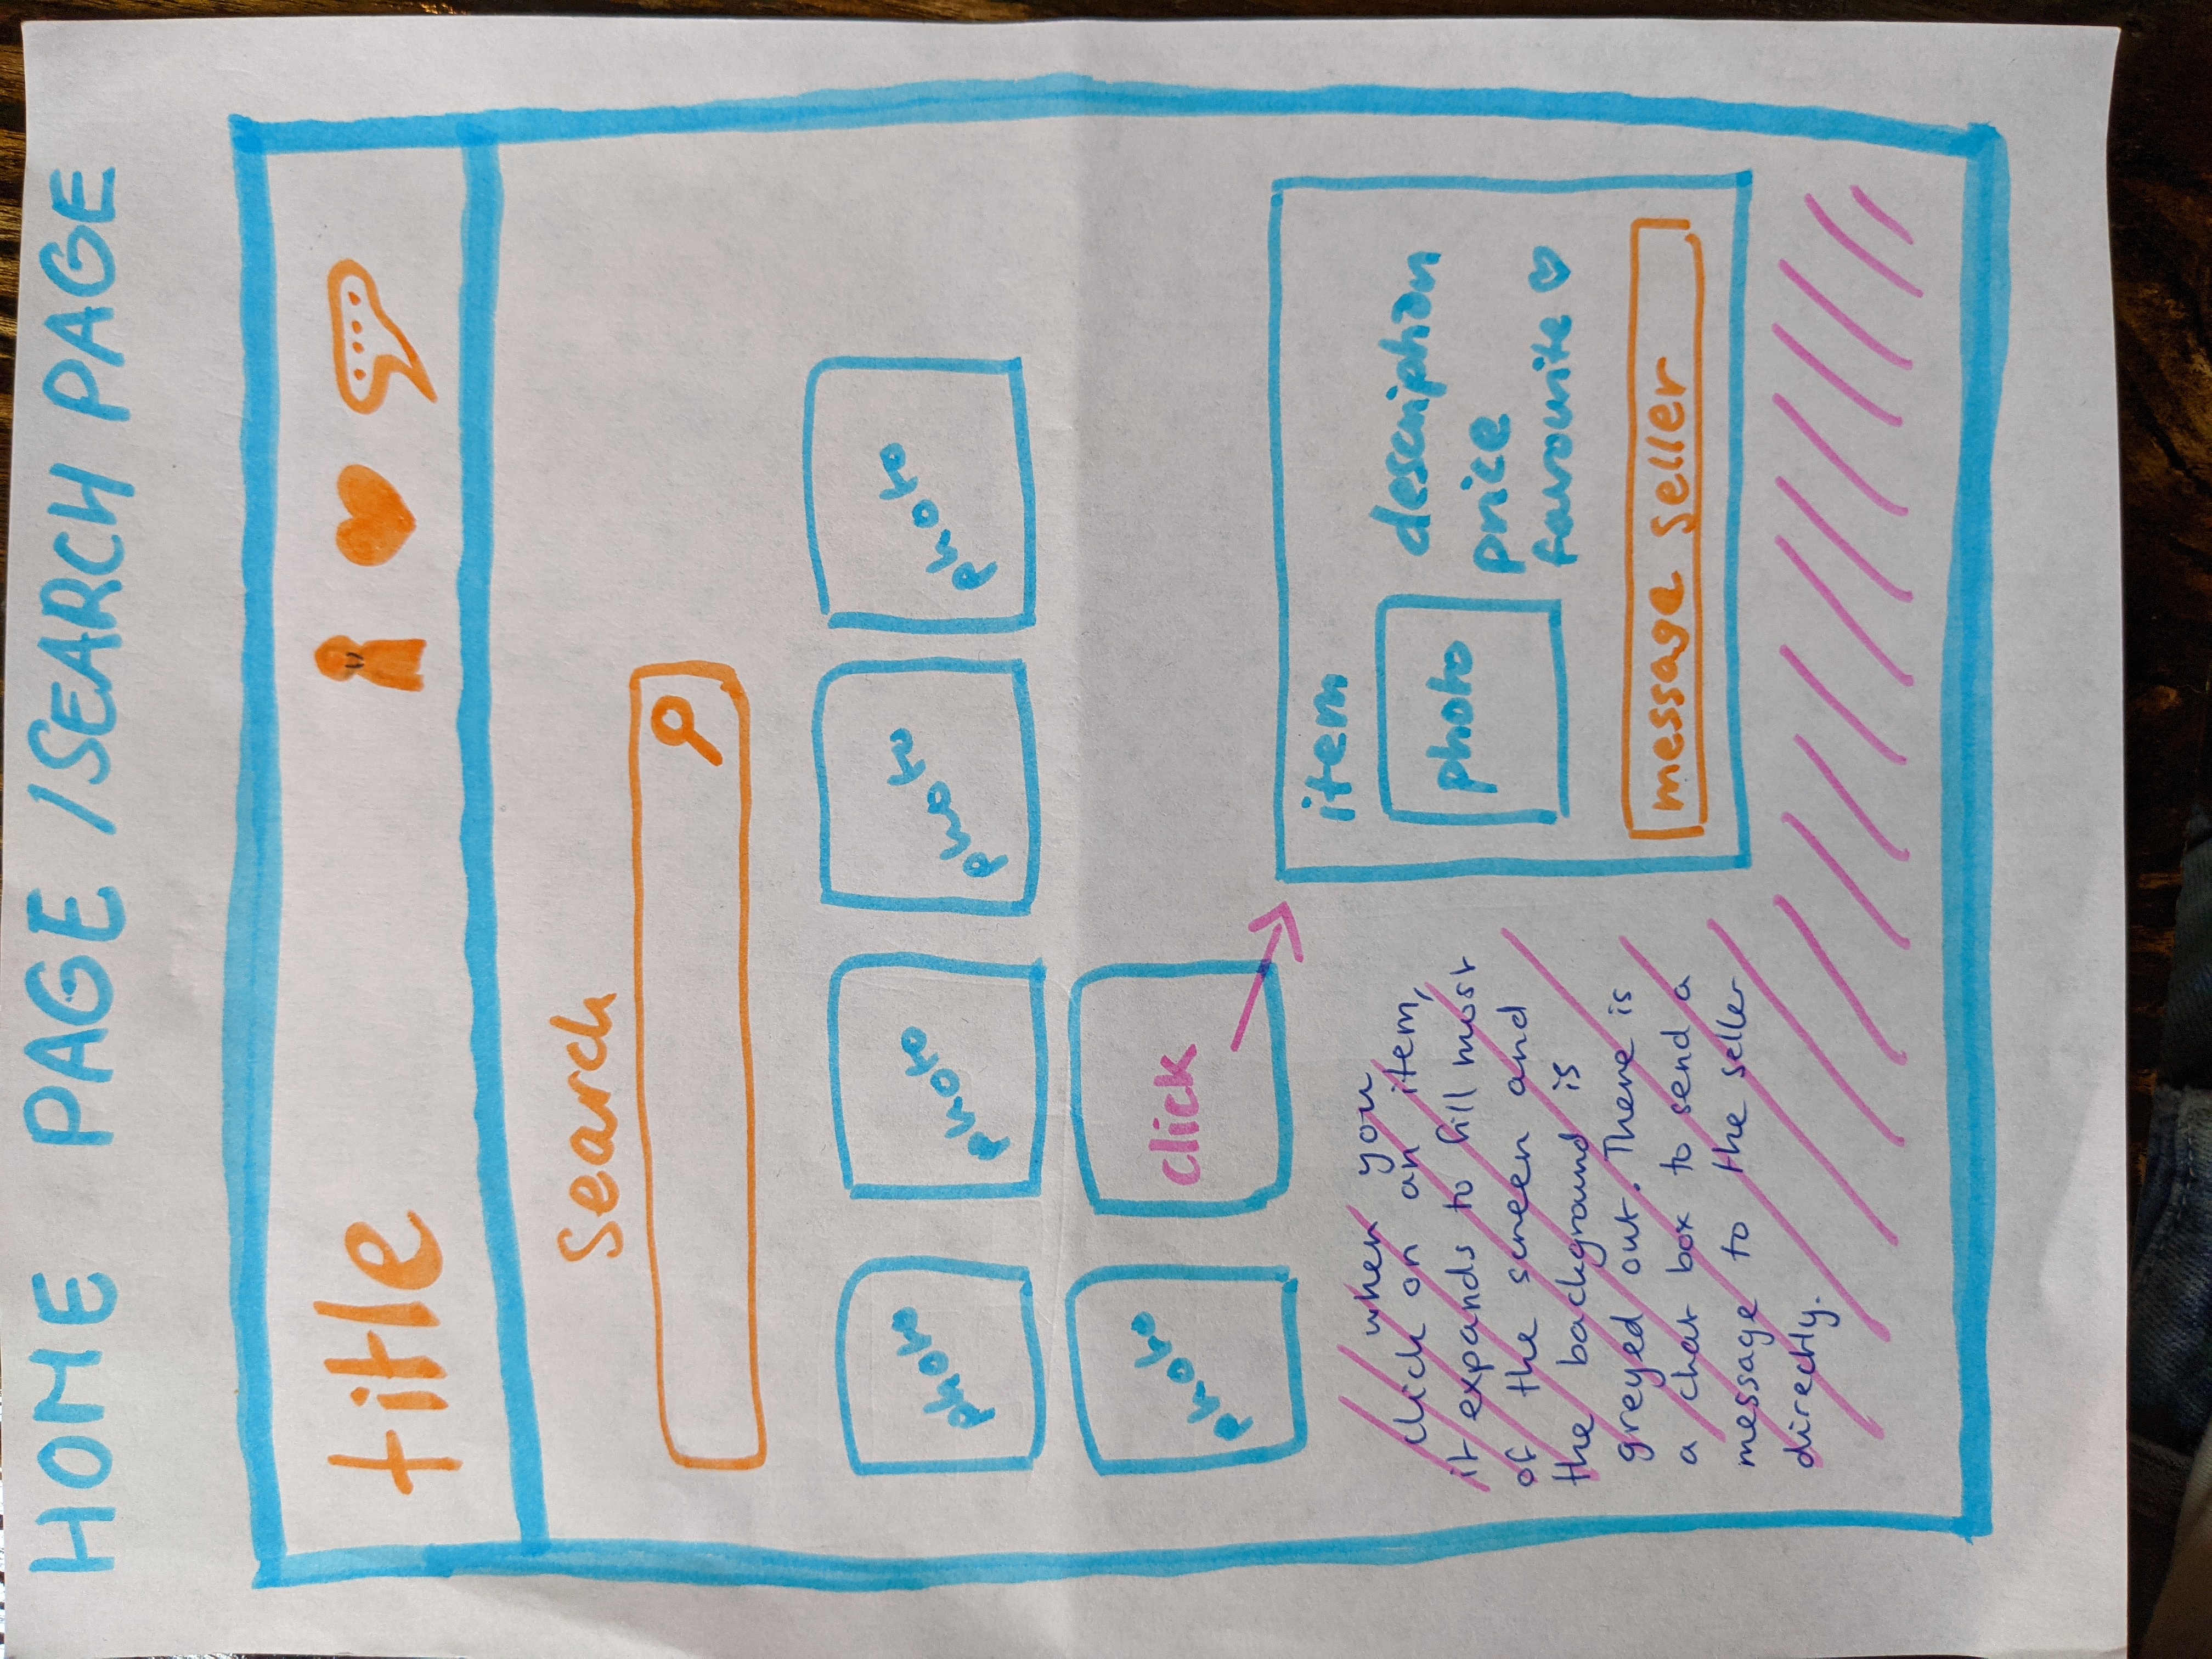 HOME PAGE / SEARCH PAGE
title
Search
photo photo photo photo
photo click
item
photo
description
price
favourite
message seller
when you
click on an item,
it expands to fill most
of the screen and
the background is
greyed out. There is
a chat box to send a
message to the seller
directly.